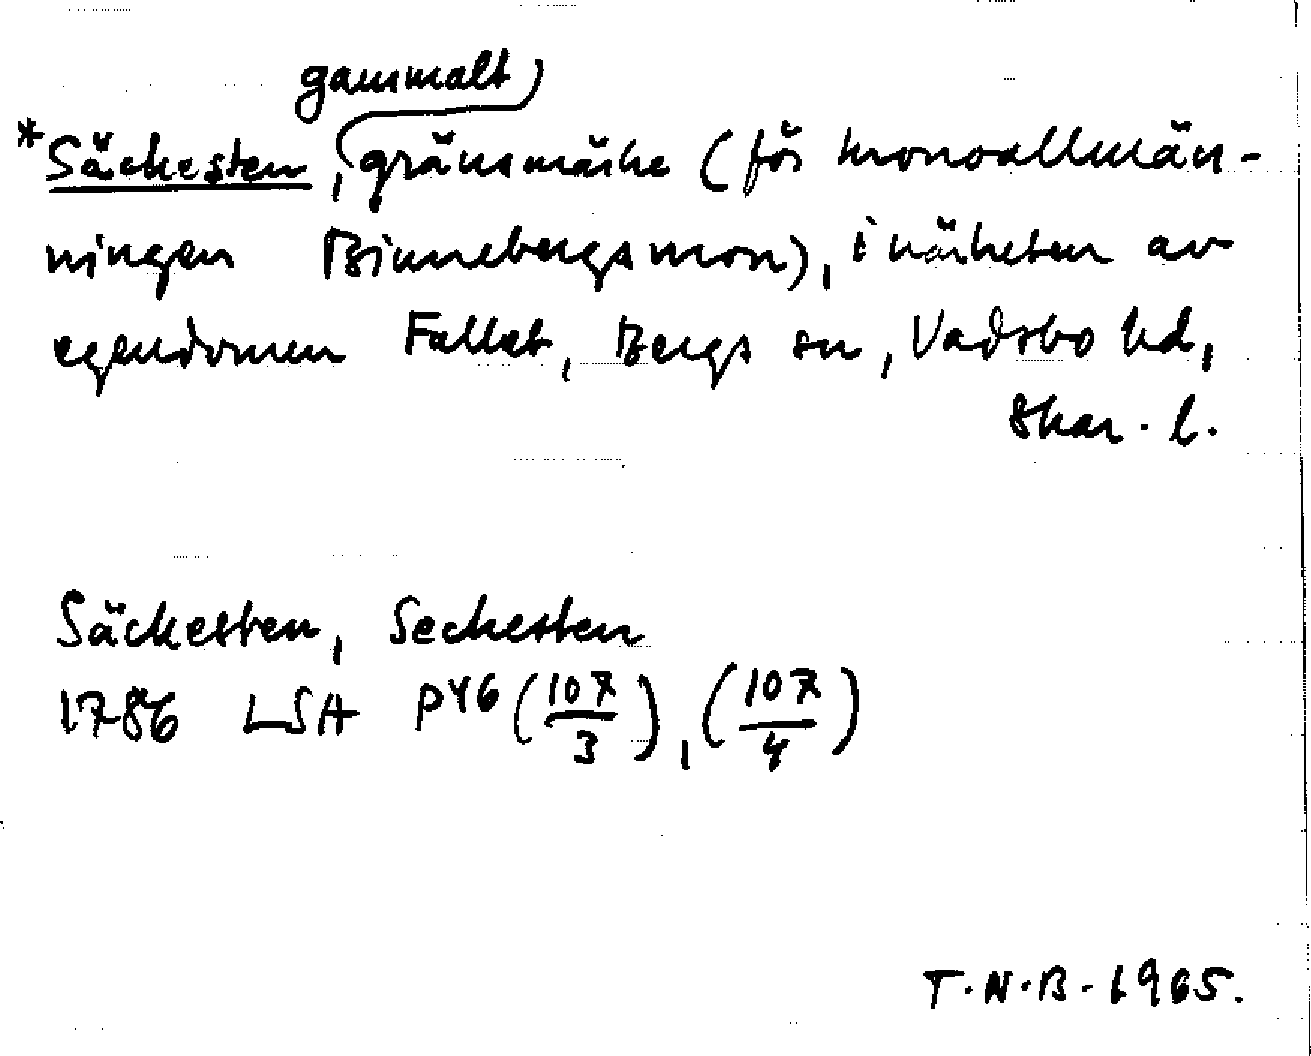 gammalt
*Säckesten, gränsmärke (för kronoallmän-
ningen Binnebergsmon), i närheten av
egendomen Fallet, Bergs sn, Vadsbo hd,
Skar. l.
Säckesten, Seckesten
1786 LSA P46 (107/3), (107/4)
T.N.B. 1965.